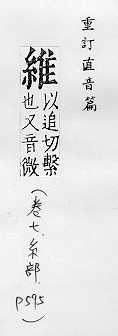 重訂直音篇
維
以追切繫
也又音微
(卷七.糸部.
p595